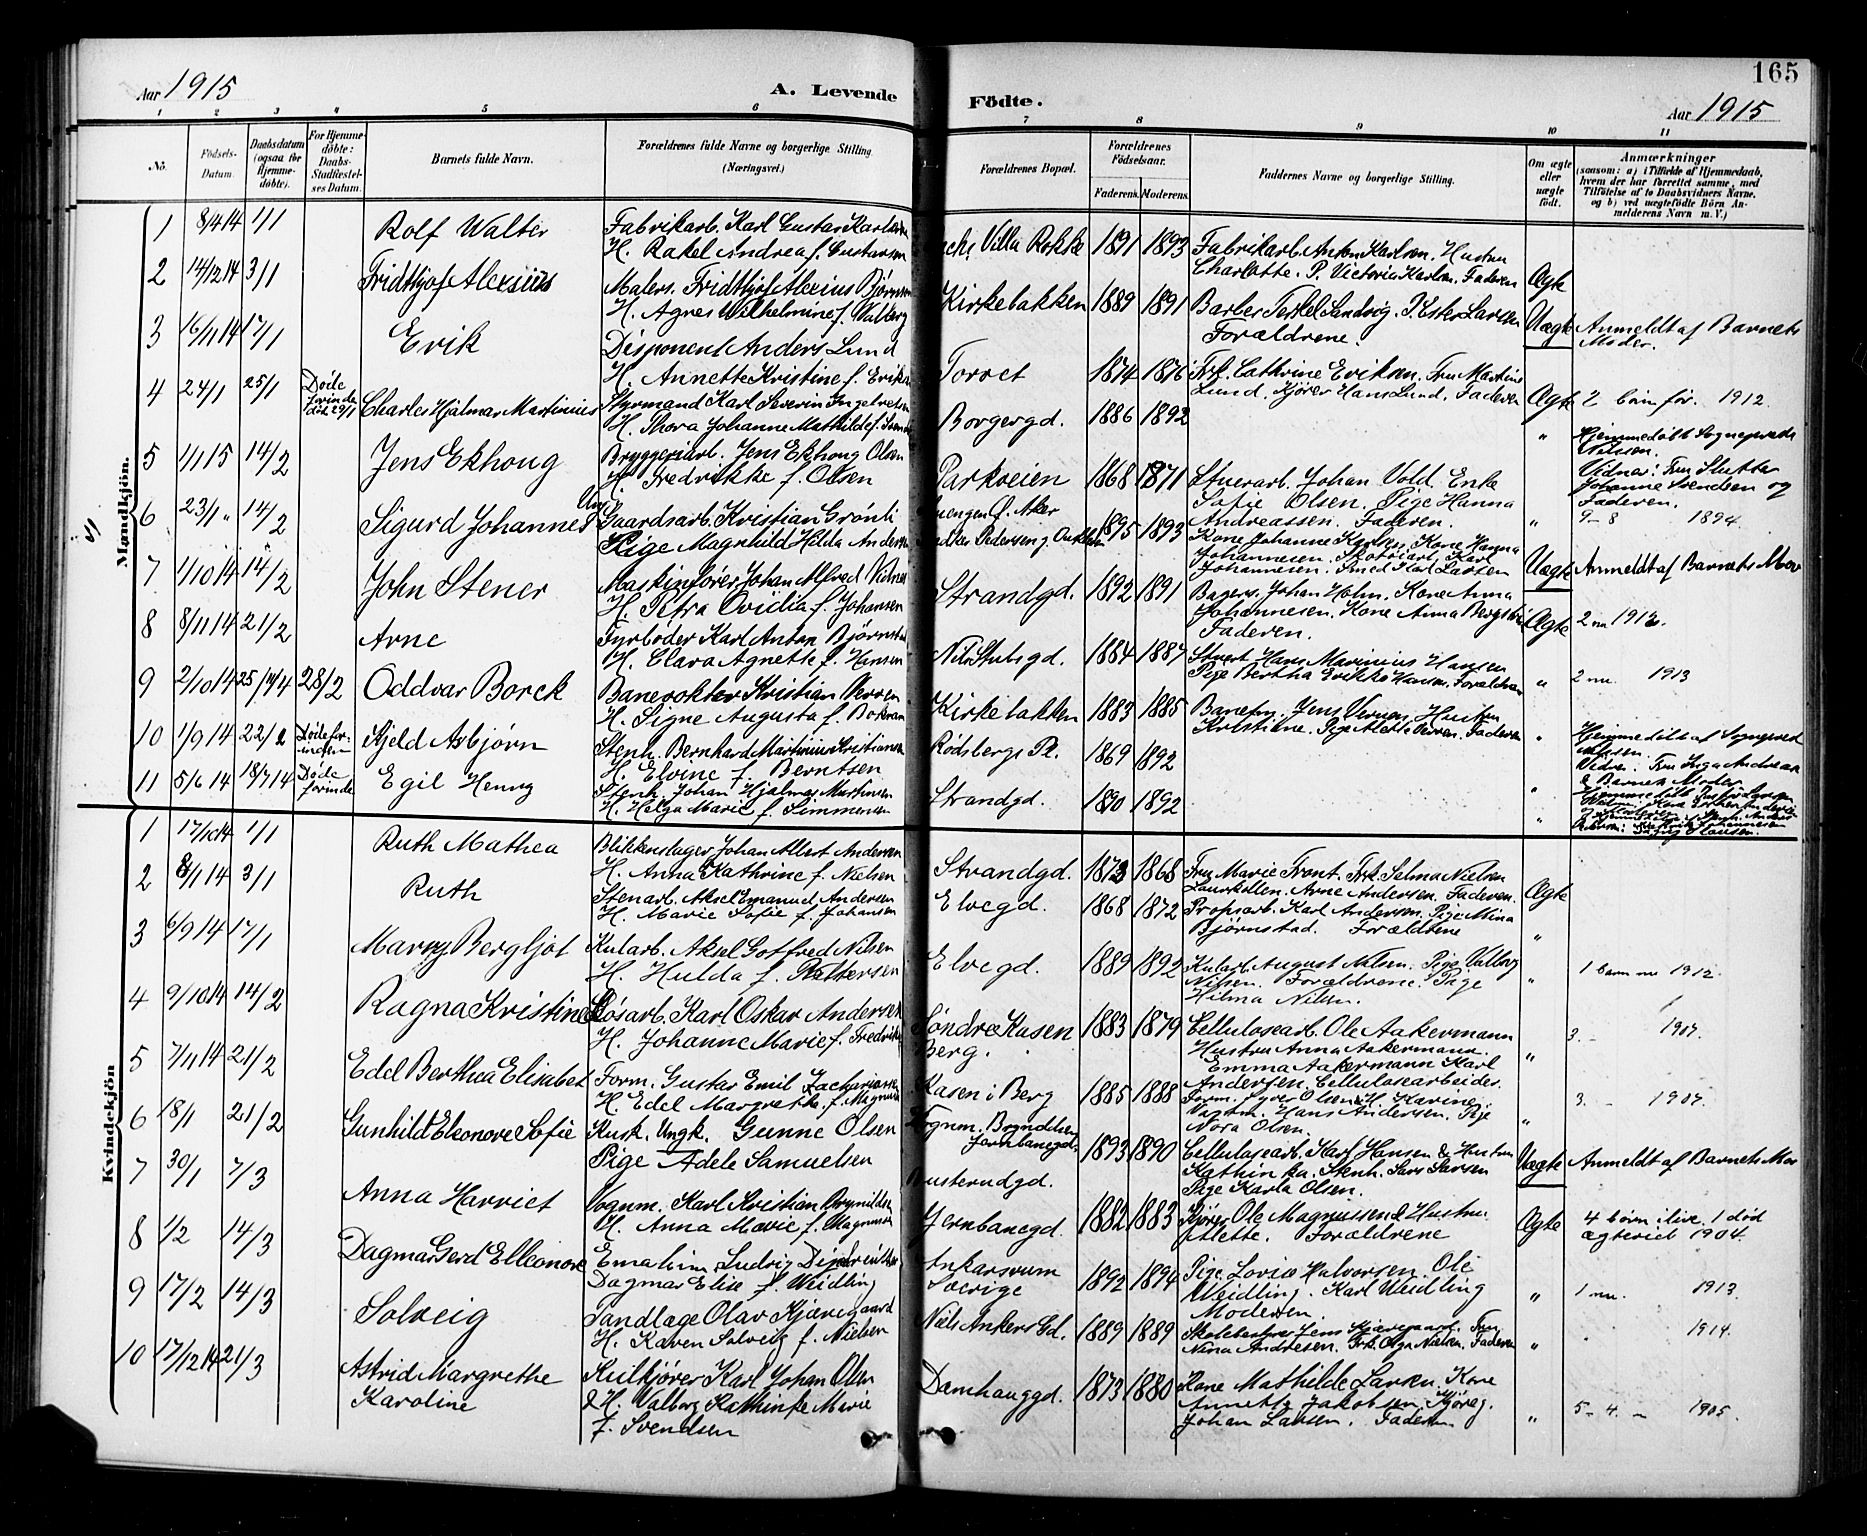 165
Aar 1915
A. Levende Födte.
Aar 1915
1 2 3 4 5 6 7 8 9 10 11
No.
Födsels-Datum.
Daabsdatum (ogsaa for Hjemme-döbte).
For Hjemme-döbte: Daabs-Stadfæstel-ses Datum.
Barnets fulde Navn.
Forældrenes fulde Navne og borgerlige Stilling (Næringsvei.)
Forældrenes Bopæl.
Forældrenes Födselsaar.
Faderens. Moderens.
Faddernes Navne og borgerlige Stilling.
Om ægte eller uægte födt.
Anmærkninger
(saasom: a) i Tilfælde af Hjemmedaab, hvem der har forrettet samme, med Tilföielse af to Daabsvidners Navne, og b) ved uægtefödte Börn An-melderens Navn m. V.)
Mandkjön.
1 8/4 14 1/1 Rolf Walter
Fabrikarb. Karl Gustav Karlsen
H. Rakel Andrea f. Gustavsen
Villa Rokke 1891 1893
Fabrikarb. Anton Karlsen. Hustru
Charlotte. P. Victoria Karlsen. Faderen
Ægte
2 14/12 14 3/1 Fridthjof Alexius
Malers. Fridthjof Alexius Bjørnsen
H. Agnes Wilhelmine f. Walberg
Kirkebakken 1889 1891
Barber Terkel Sandvig. P. Ester Larsen
Forældrene.
Uægte Anmeldt af Barnets Moder.
3 16/11 14 17/1 Erik
Disponent Anders Lund
H. Annette Kristine f. Eriksen
Torvet 1874 1876
Frk. Cathrine Eriksen. Fru Martine
Lund. Kjører Hans Lund. Faderen
Ægte 2 børn før. 1912.
4 24/1 25/1 Døde forinden
Charles Hjalmar Martinius
Styrmand Karl Severin Ingebretsen
H. Thora Johanne Mathilde f.
Borgergd. 1886 1892
" Hjemmedøbt Sognepræst
Nilsen.
Vidner: Fru Slutter
Johanne Svendsen og
Faderen.
5 1/1 15 14/2 Jens Ekhoug
Bryggeriarb. Jens Ekhoug Olsen
H. Fredrikke f. Olsen
Parkveien 1868 1871
Stuerarb. Johan Vold. Enke
Sofie Olsen. Pige Hanna
Andreassen. Faderen.
" 9 - 8 1894.
6 23/1 " 14/2 Sigurd Johannes
Ung. Gaardsarb. Kristian Grønli
Pige Magnhild Hilda Andersen
Ø. Aker
1895 1893
Kone Johanne Karlsen. Kone Hanna
Johannesen. Skotøiarb. Karl
Johannesen. Smed Karl Larsen
Uægte Anmeldt af Barnets Mor
7 1/10 14 14/2 John Stener
Maskinfører Johan Alfred Vidnes
H. Petra Ovidia f. Johansen
Strandgd. 1892 1891
Bagers. Johan Holm. Kone Anna
Johannesen. Kone Anna Bergsbø
Faderen.
Ægte 2 nu 1912.
8 8/11 14 21/2 Arne
Fyrbøder Karl Anton Bjørnstad
H. Clara Agnette f. Hansen
Nils Stubsgd. 1884 1887
Stuert Hans Marinius Hansen
Pige Bertha Erikke Hansen. Forældrene
" 2 nu. 1913
9 2/10 14 25/14 28/2 Oddvar Borck
Banevokter Kristian Verven
H. Signe Augusta f.
Kirkebakken 1883 1885
Banefm. Jens Verven, Hustru
Kristiane. Pige Alette Verven. Faderen
"
10 1/9 14 22/2 Døde forinden Kjeld Asbjørn
Stenh. Bernhard Martinius Kristiansen
H. Elvine f. Berntsen
Rødsbergs Pl. 1869 1892
" Hjemmedøbt af Sognepræst
Nilsen.
Vidner: Fru Inga Andreasen
& Barnets Moder
11 5/6 14 18/7 14 Døde forinden Egil Henry
Stenh. Johan Hjalmar Martinsen
H. Helga Marie f. Simmensen
Strandgd. 1890 1892
"
Kvindekjön
1 17/10 14 1/1 Ruth Mathea
Blikkenslager Johan Albert Andersen
H. Anna Kathrine f. Nielsen
Strandgd. 1873 1868
Fru Marie Tront. Frk. Selma Nielsen
Laurkullen. Arne Andersen. Faderen.
Ægte
2 8/11 14 3/1 Ruth
Stenarb. Aksel Emanuel Andersen
H. Marie Sofie f. Johansen
Elvegd. 1868 1872
Propsarb. Karl Andersen. Pige Mina
Bjørnstad. Forældrene
"
3 6/9 14 17/1 Marry Bergljot
Kularb. Aksel Gotfred Nilsen
H. Hulda f. Pettersen
Elvegd. 1889 1892
Kularb. August Nilsen. Pige Valborg
Nilsen. Forældrene. Pige
Hilma Nilsen.
" 1 barn nu 1912.
4 9/10 14 14/2 Ragna Kristine
Løsarb. Karl Oskar Andersen
H. Johanne Marie f. Fredriksen
Søndre Kasen
Berg. 1883 1879
Cellulosearb. Ole Aakermann
Hustru Anna Aakermann.
Emma Aakermann Karl
Andersen. Cellulosearbeider
" 3. - 1907.
5 7/11 14 21/2 Edel Berthea Elisabet
Form. Gustav Emil Zachariassen
H. Edel Margrethe f. Magnusen
Kasen i Berg 1885 1888
Form. Syver Olsen & H. Karine.
Vagtm. Hans Andersen. Pige
Nora Olsen.
" 3. - 1907.
6 18/1 21/2 Gunhild Eleonore Sofie
Kusk. Ungk. Gunne Olsen
Pige Adele Samuelsen
Vognm. Brynildsen
Jernbanegd. 1893 1890
Busterudgd.
Cellulosearb. Karl Hansen & Hustru
Kathinka. Stenh. Lars Larsen
Pige Karla Olsen.
Uægte Anmeldt af Barnets Mor
7 30/1 7/3 Anna Harriet
Vognm. Karl Kristian Brynildsen
H. Anna Marie f. Magnusen
Jernbanegd. 1882 1883
Kjører Ole Magnussen & Hustru
Alette. Forældrene
Ægte 4 børn ilive. 1 død
ægteviet 1904.
8 1/2 14/3 Dagmar Gerd Elleonore
Ludvig
Dagmar Elise f. Weidling
Ankarsrum
Sverige 1892 1894
Pige Lovise Halvorsen. Ole
Weidling. Karl Weidling
Moderen.
" 1 nu. 1913.
9 17/2 14/3 Solveig
Tandlæge Olav Kjæregaard
H. Karen Solveig f. Nielsen
Niels Ankers Gd. 1889 1889
Skolebestyrer Jens Kjærgaard. Fru
Nina Andresen. Frk. Olga Nielsen. Faderen
" 1914.
10 17/12 14 21/3 Astrid Margrethe
Karoline
Kulkjører Karl Johan Olsen
& H. Valborg Kathinka Marie
f. Svendsen
Damhauggd. 1873 1880
Kone Mathilde Larsen, Kone
Annette Jakobsen. Kjøreg.
Johan Larsen. Faderen
" 5 - 4. - 1905.